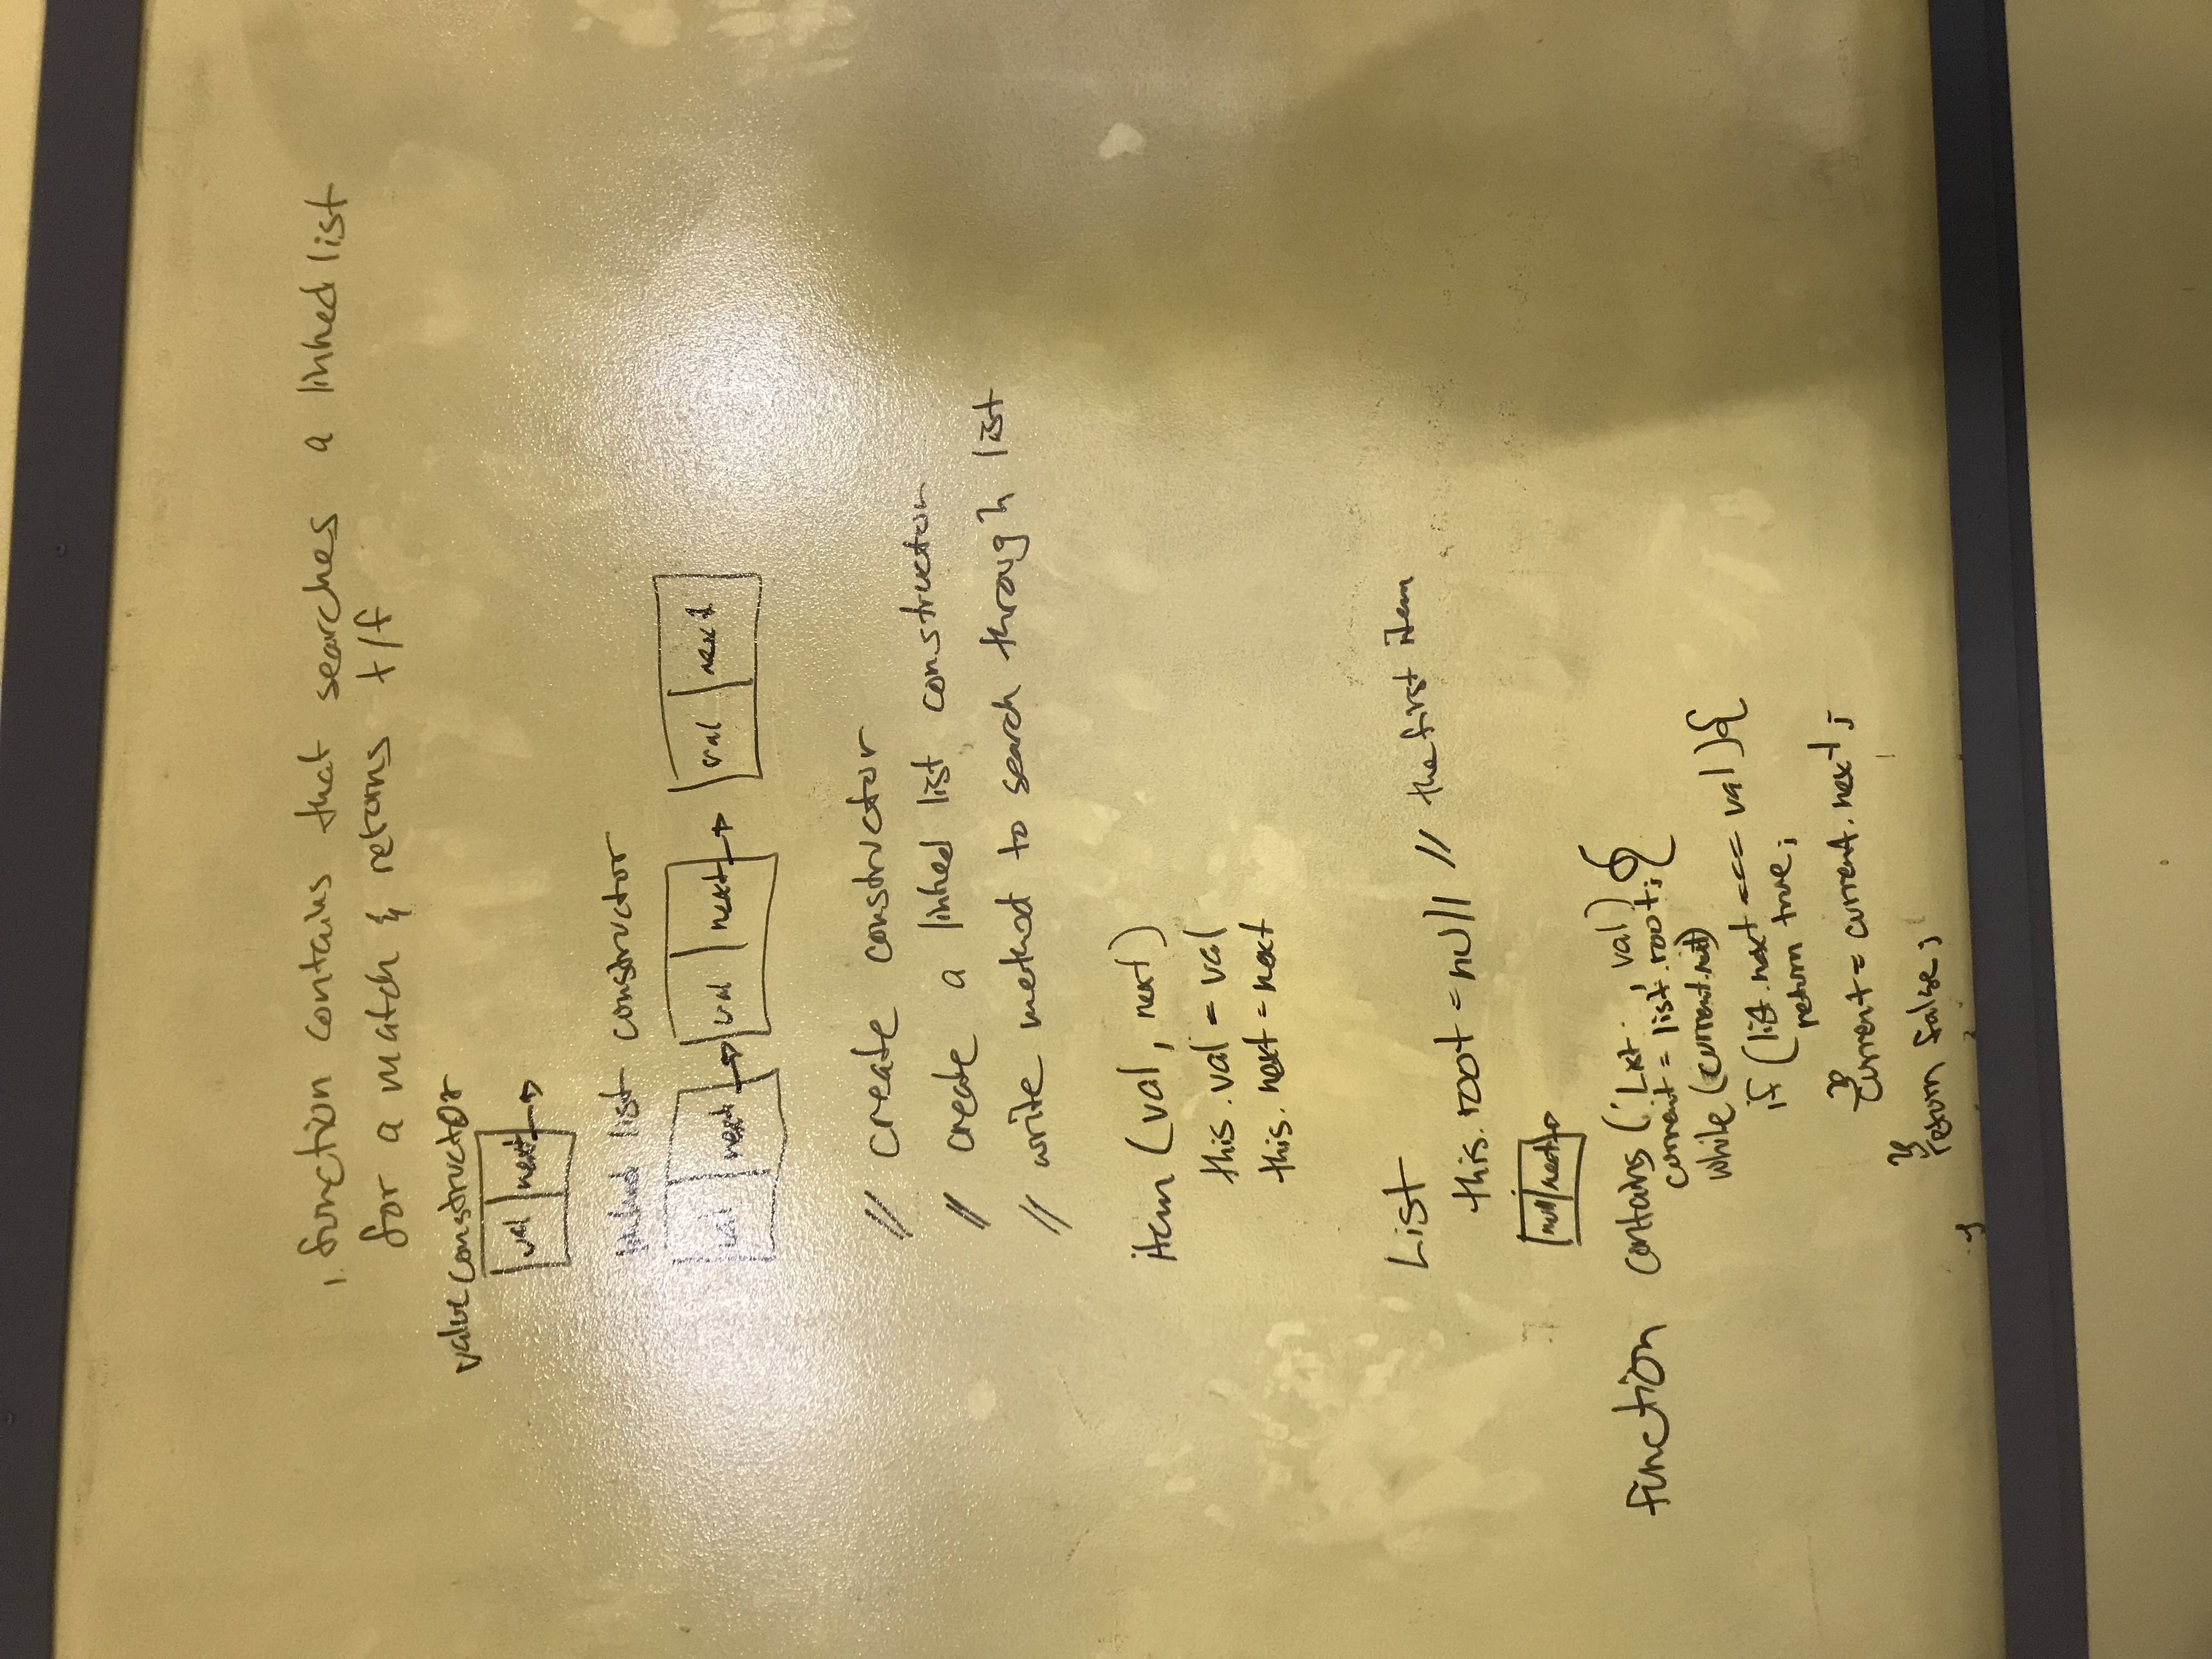 1. function contains that searches a linked list
for a match & returns t/f
value constructor
val next
linked list constructor
val next val next val next
// create constructor
// create a linked list constructor
// write method to search through list
item (val, next)
this.val = val
this.next = next
List
this.root = null // the first item
null next
function contains (List, val) {
current = list.root;
while (current.next)
if (list.next === val) {
return true;
}
current = current.next;
}
return false;
}